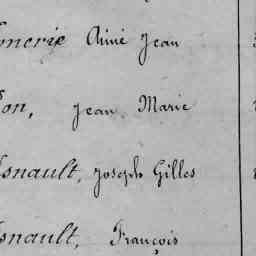 merie Aimé Jean
on, Jean Marie
snault, Joseph Gilles
snault, François